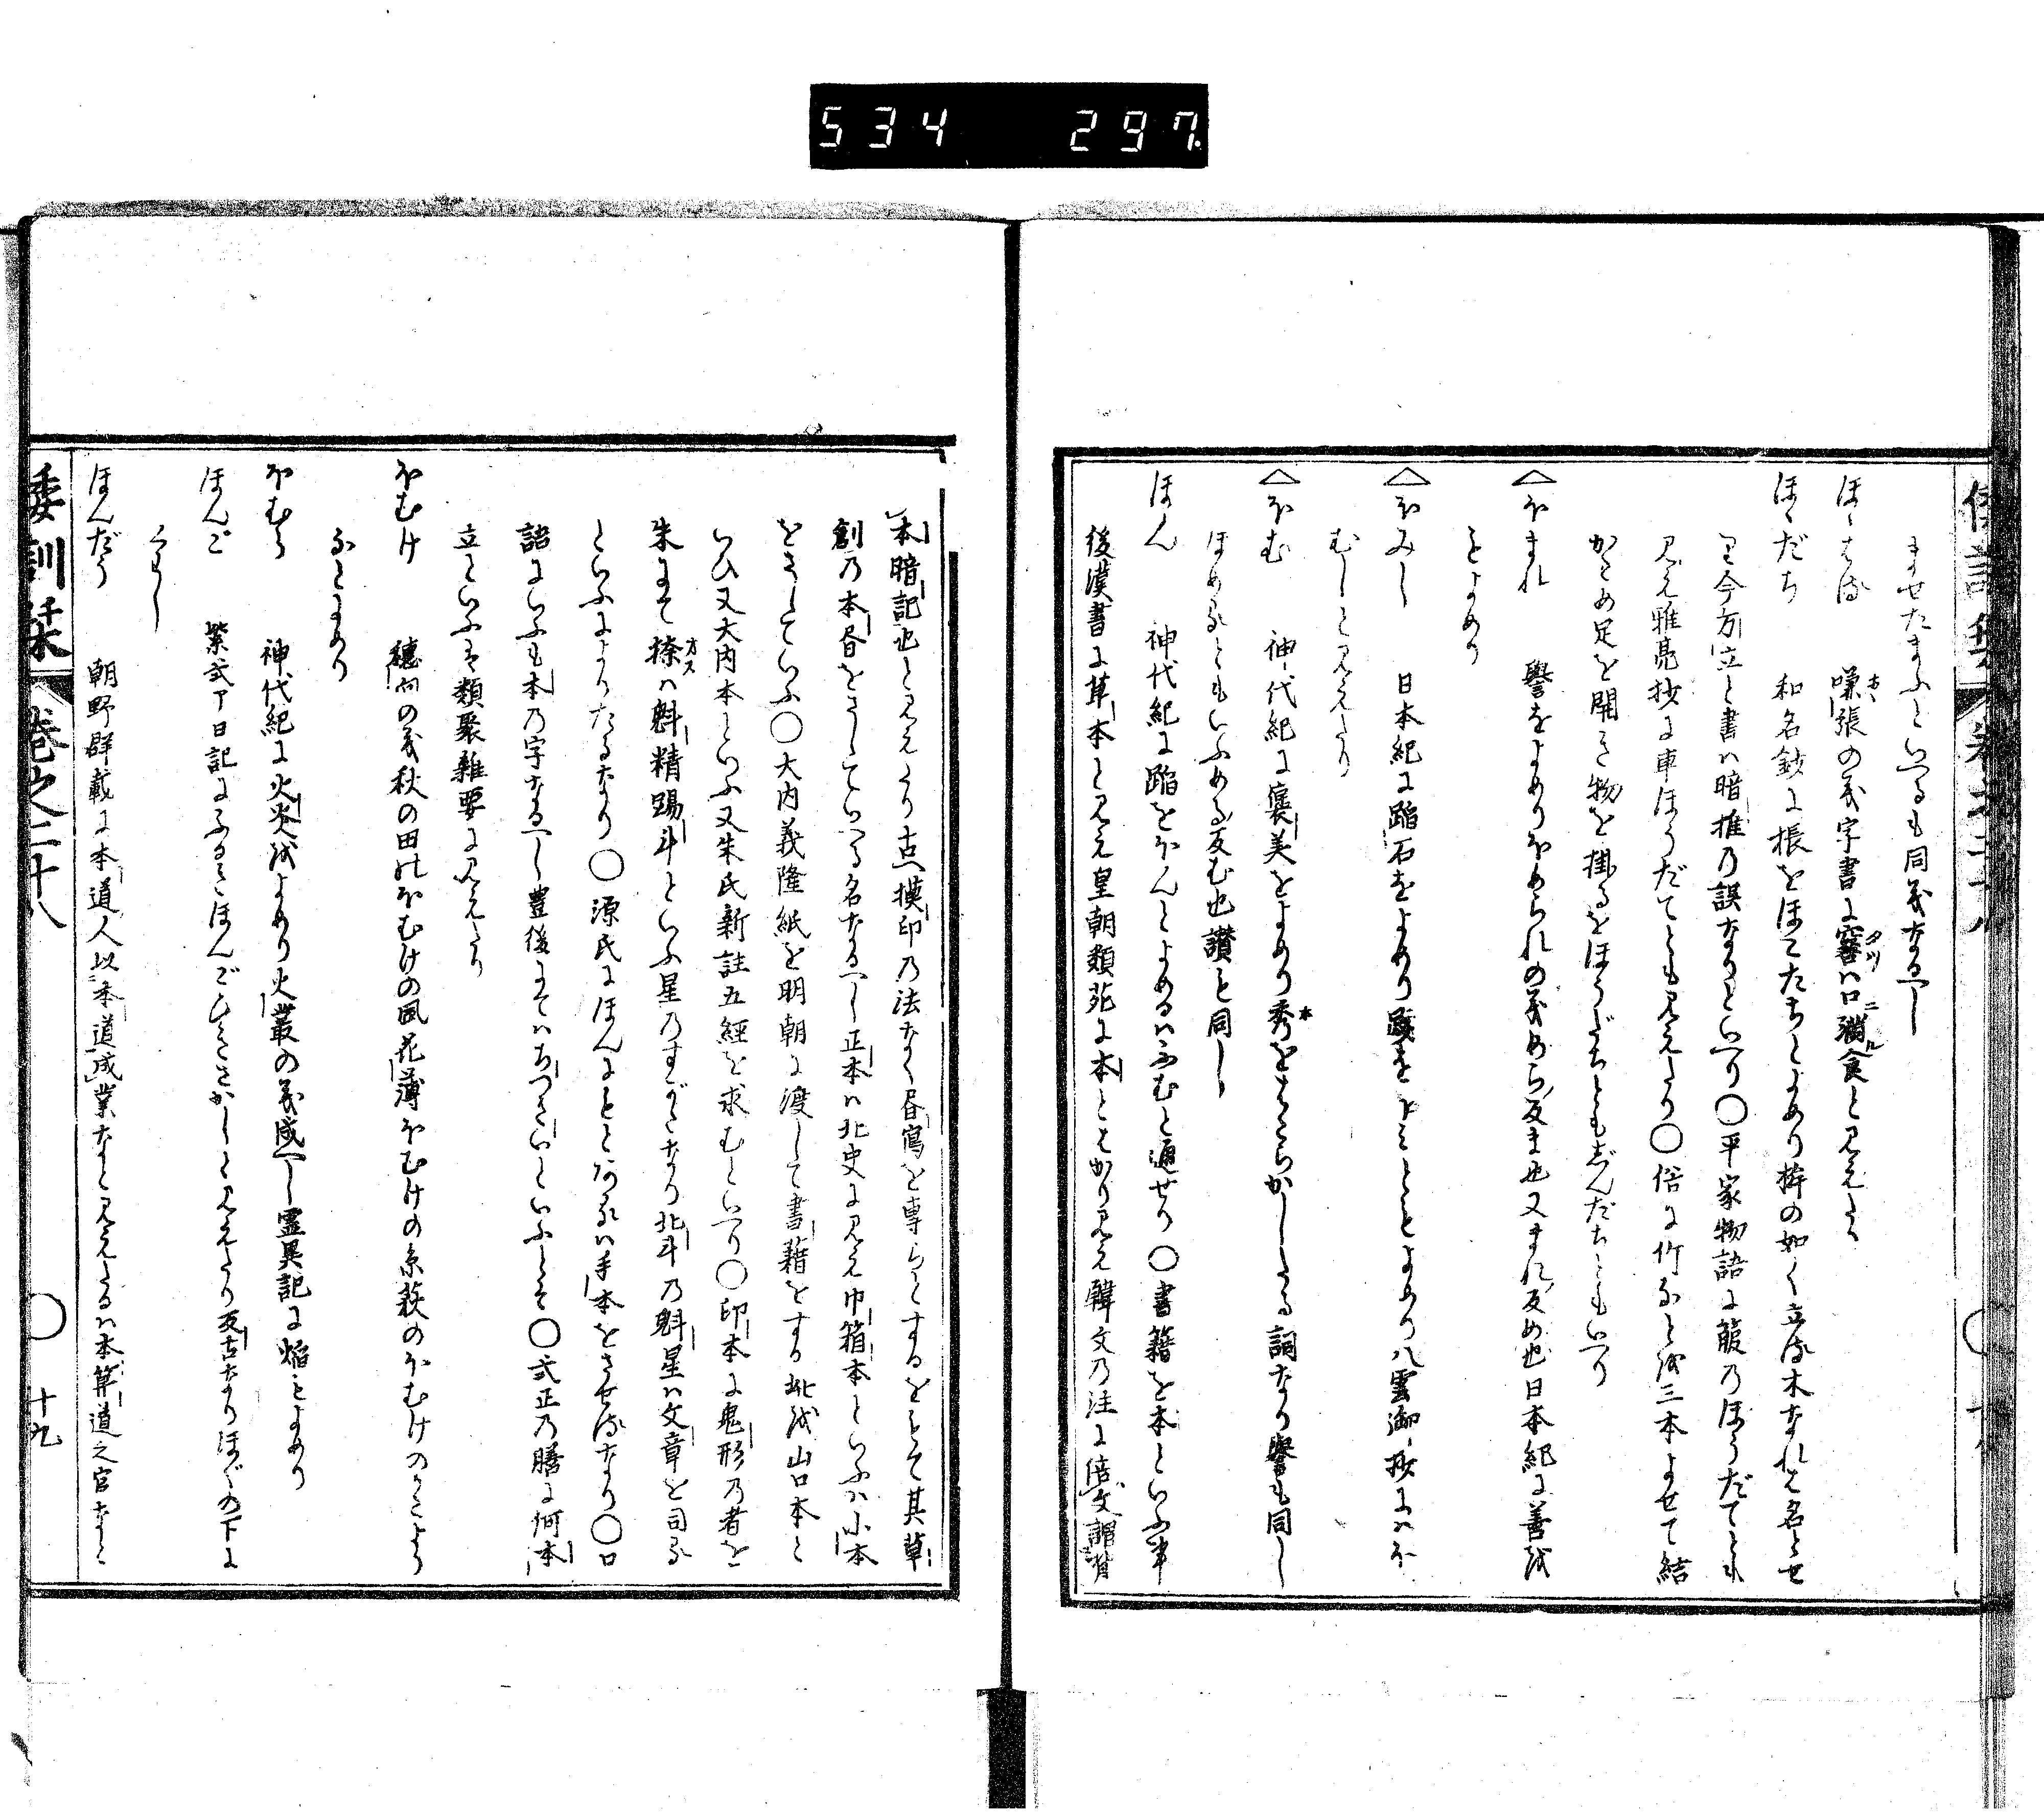 534 297
ませたまふといへるも同義なるべし
ほゝはる 嘌張の義字書に窶ハ口満食と見えたり
ほゝだち 和名鈔に棖をほこたちとよめり桙の如く立る木なれは名とせ
り今方立と書ハ暗推の誤なりといへり○平家物語に箙のほうだてとも
見え雅亮抄に車ほうだてとも見えたり○俗に竹なとを三本よせて結
かため足を開き物を掛るをほうだちともぢんだちともいへり
△ほまれ 譽をよめりほめられの義めら反ま也又まれ反め也日本紀に善を
もよめり
△ほみし 日本紀に蹈石をよめり
むしと見えたり
△ほむ 神代紀に褒美をよめり秀をはたらかしたる詞なり譽も同し
ほめるともいふめる反む也讃も同し
ほん 神代紀に蹈をほんとよめるハふむと通せり○書籍を本といふ事
後漢書に草本と見え皇朝類苑に本とはかり見え韓文の注に倍文謂背
本暗記也と見えたり古ヘ摸印の法なく昼寫を専らとするをもて其草
創の本昼をさしていへる名なるべし正本ハ北史に見え巾箱本といふハ小本
をさしていふ○大内義隆紙を明朝に渡して書籍をする此を山口本と
いひ又大内本といふ又朱氏新註五經を求むといへり○印本に鬼形の者を
朱にて捺ハ魁精踢斗といふ星のすがたなり北斗の魁星ハ文章を司る
といふによりたるなり○源氏にほんにもとあるハ手本をさせるなり○口
語にいふも本の字なるべし豊後にてハちつさいといふとそ○式正の膳に何本
立といふは類聚雜要に見えたり
ほむけ 穗向の義秋の田のほむけの風花薄ほむけの糸萩のほむけのかたより
なとよめり
ほむら 神代紀に火炎をよめり火叢の義成へし霊異記に焔もよめり
ほんご 紫式ア日記にふるきほんごひきさかしと見えたり反古なりほぐの下に
くはし
ほんだう 朝野群載に本道人以本道成業なと見えたるハ本算道之官なと
倭訓栞 巻之二十八 ○ 十九